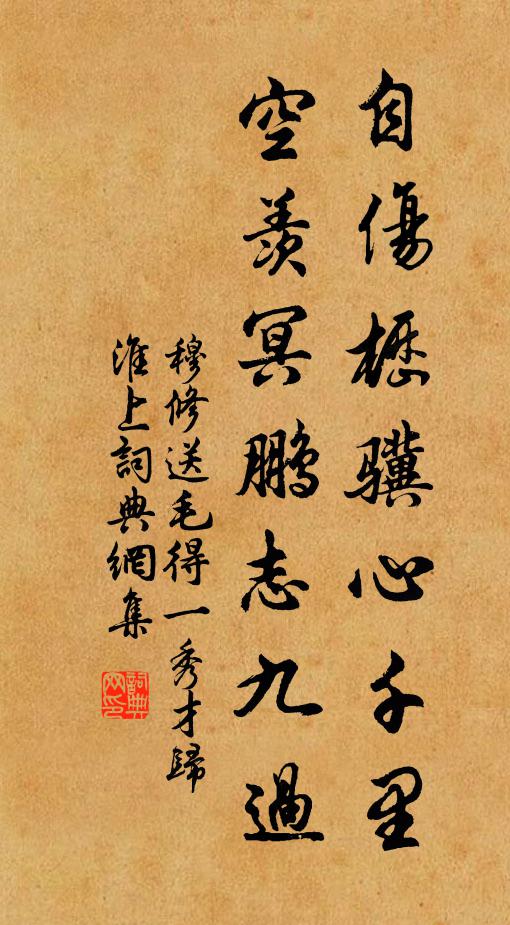 自傷櫪驥心千里
空羨冥鵬志九過
穆修送毛得一秀才歸
淮上詞典網集
詞典网印